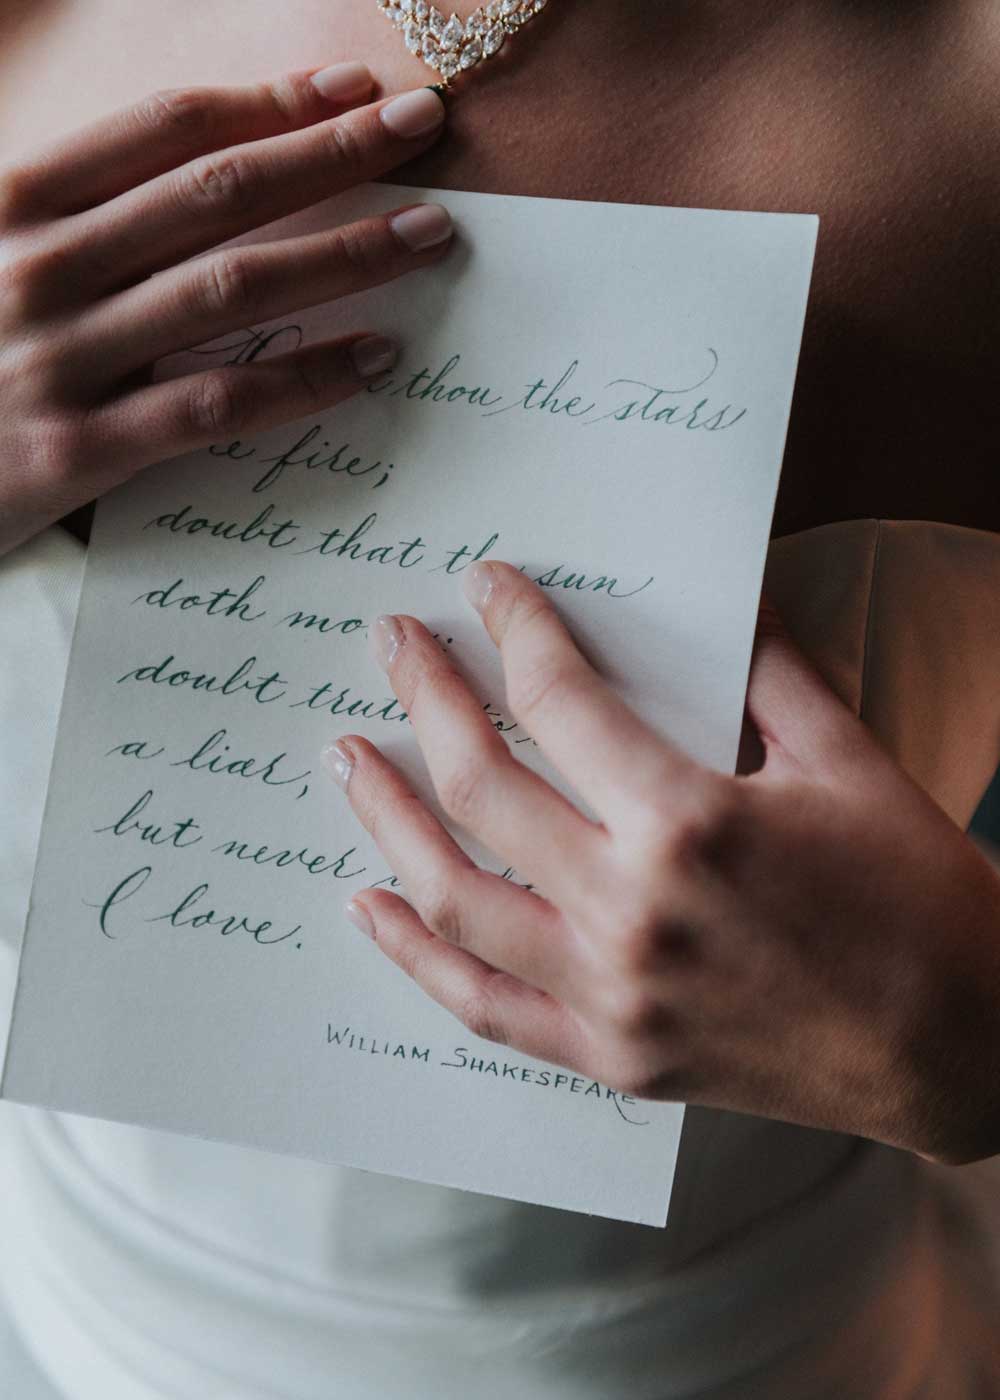 thou the stars
fire;
doubt that the sun
doth
doubt truth
a liar,
but never
I love.
WILLIAM SHAKESPEARE